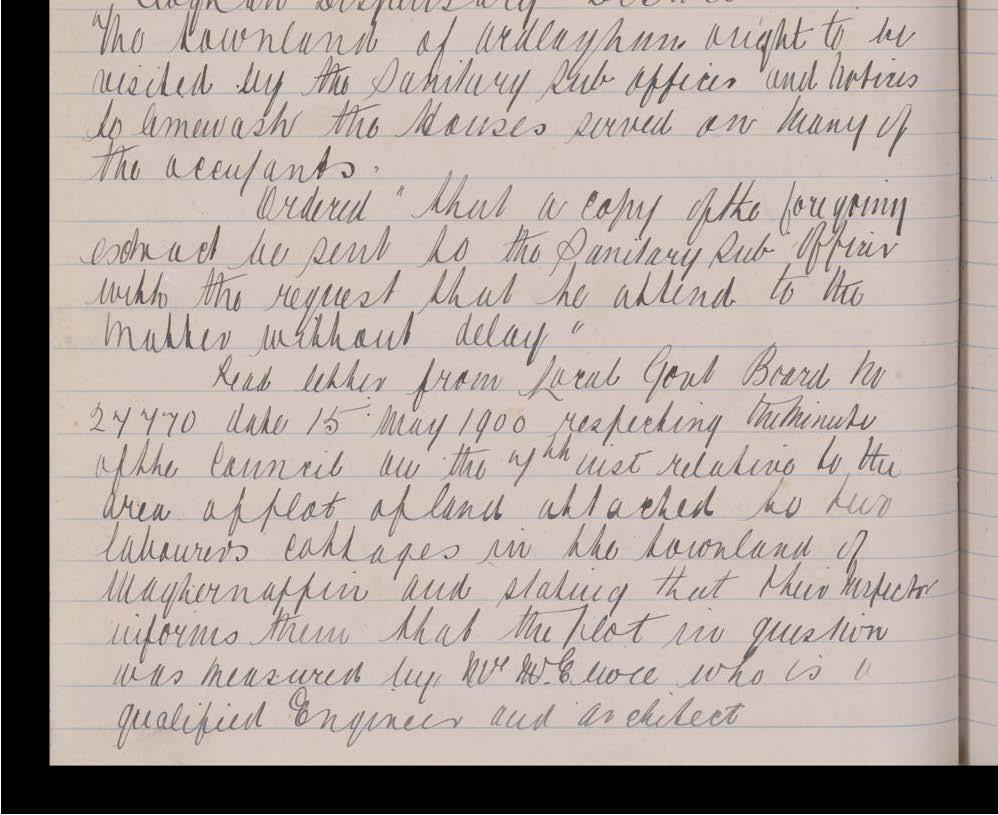 Dispensary
The townland of ardlaghan ought to be
visited by the Sanitary Sub officer and notices
to limewash the Houses served on Many of
the occupants.
Ordered "that a copy of the foregoing
extract be sent to the Sanitary Sub Officer
with the request that he attend to the
matter without delay"
Read letter from Local Govt Board No
27770 date 15 May 1900 respecting the Minute
of the Council on the 7th inst relative to the
area of plot of land attached to two
labourers cottages in the townland of
Maghernappin and stating that their Inspector
informs them that the plot in question
was measured by Mr who is a
qualified Engineer and architect